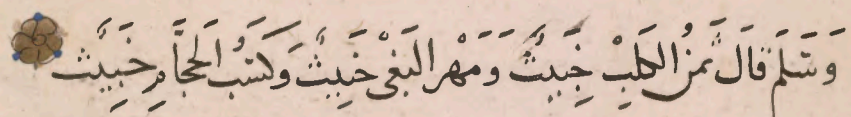 وَسَلَّمَ قَالَ ثَمَنُ الكَلْبِ خَبِيثٌ وَمَهْرُ البَغِىِّ خَبِيثٌ وَكَسْبُ الحَجَّامِ خَبِيثٌ